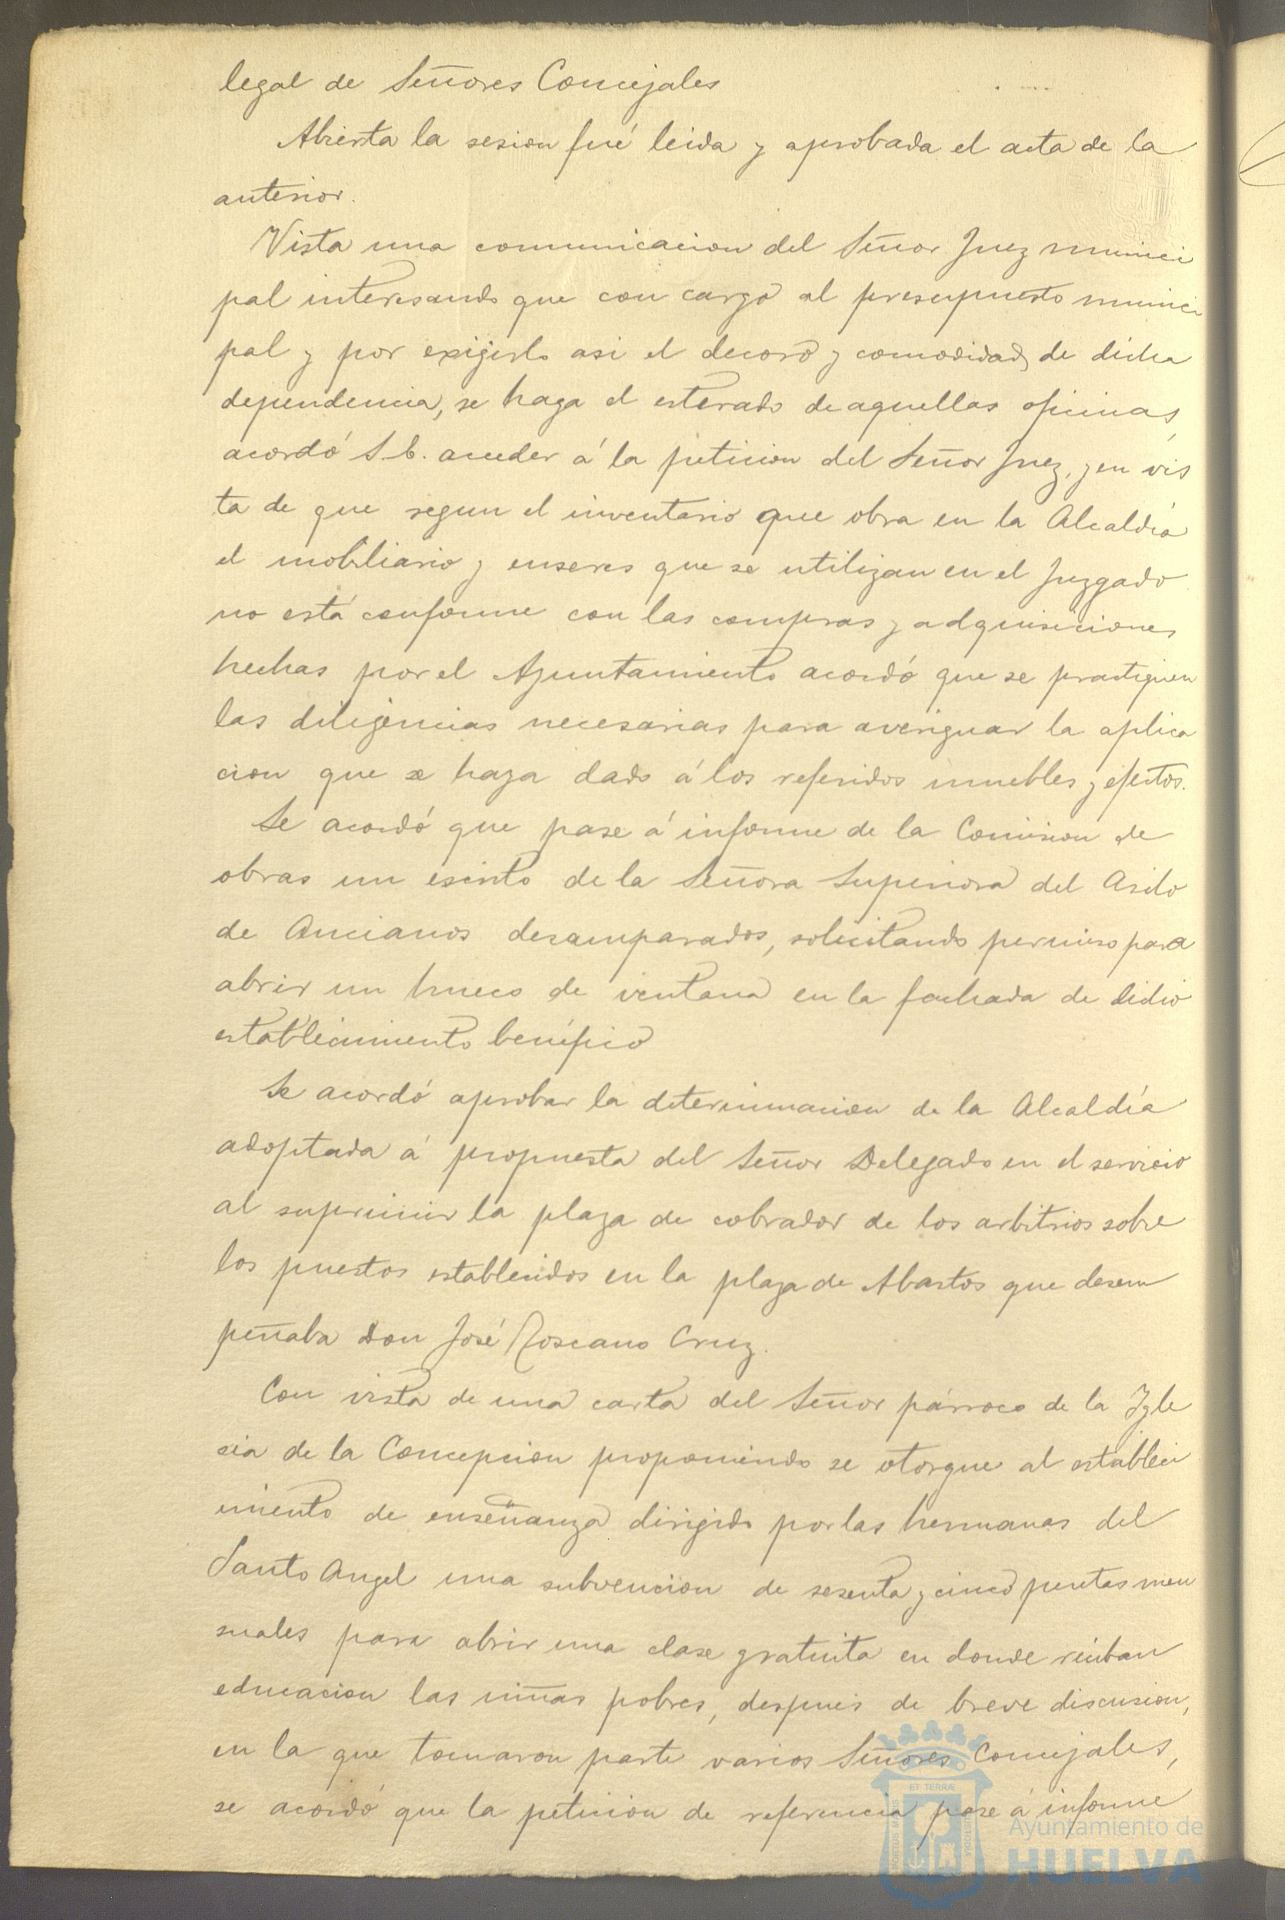 legal de Señores Concejales
Abierta la sesion fué leida y aprobada el acta de la
anterior.
Vista una comunicacion del Señor Juez munici
pal interesando que con cargo al presupuesto munici
pal y por exijirlo asi el decoro y comodidad de dicha
dependencia, se haga el esterado de aquellas oficinas,
acordó S. E. acceder á la peticion del Señor Juez, y en vis
ta de que segun el inventario que obra en la Alcaldía
el mobiliario y enseres que se utilizan en el Juzgado
no está conforme con las compras y adquisiciones
hechas por el Ayuntamiento acordó que se practiquen
las diligencias necesarias para averiguar la aplica
cion que se haya dado á los referidos muebles y efectos.
Se acordó que pase á informe de la Comision de
obras un escrito de la Señora Superiora del Asilo
de Ancianos desamparados, solicitando permiso para
abrir un hueco de ventana en la fachada de dicho
establecimiento benéfico
Se acordó aprobar la determinacion de la Alcaldía
adoptada á propuesta del Señor Delegado en el servicio
al suprimir la plaza de cobrador de los arbitrios sobre
los puestos establecidos en la plaza de Abastos que desem
peñaba Don José Toscano Cruz.
Con vista de una carta del Señor párroco de la Igle
sia de la Concepcion proponiendo se otorgue al estableci
miento de enseñanza dirigido por las hermanas del
Santo Angel una subvencion de sesenta y cinco pesetas men
suales para abrir una clase gratuita en donde reciban
educacion las niñas pobres, despues de breve discusion,
en la que tomaron parte varios Señores Concejales,
se acordó que la peticion de referencia pase á informe
Ayuntamiento de
HUELVA